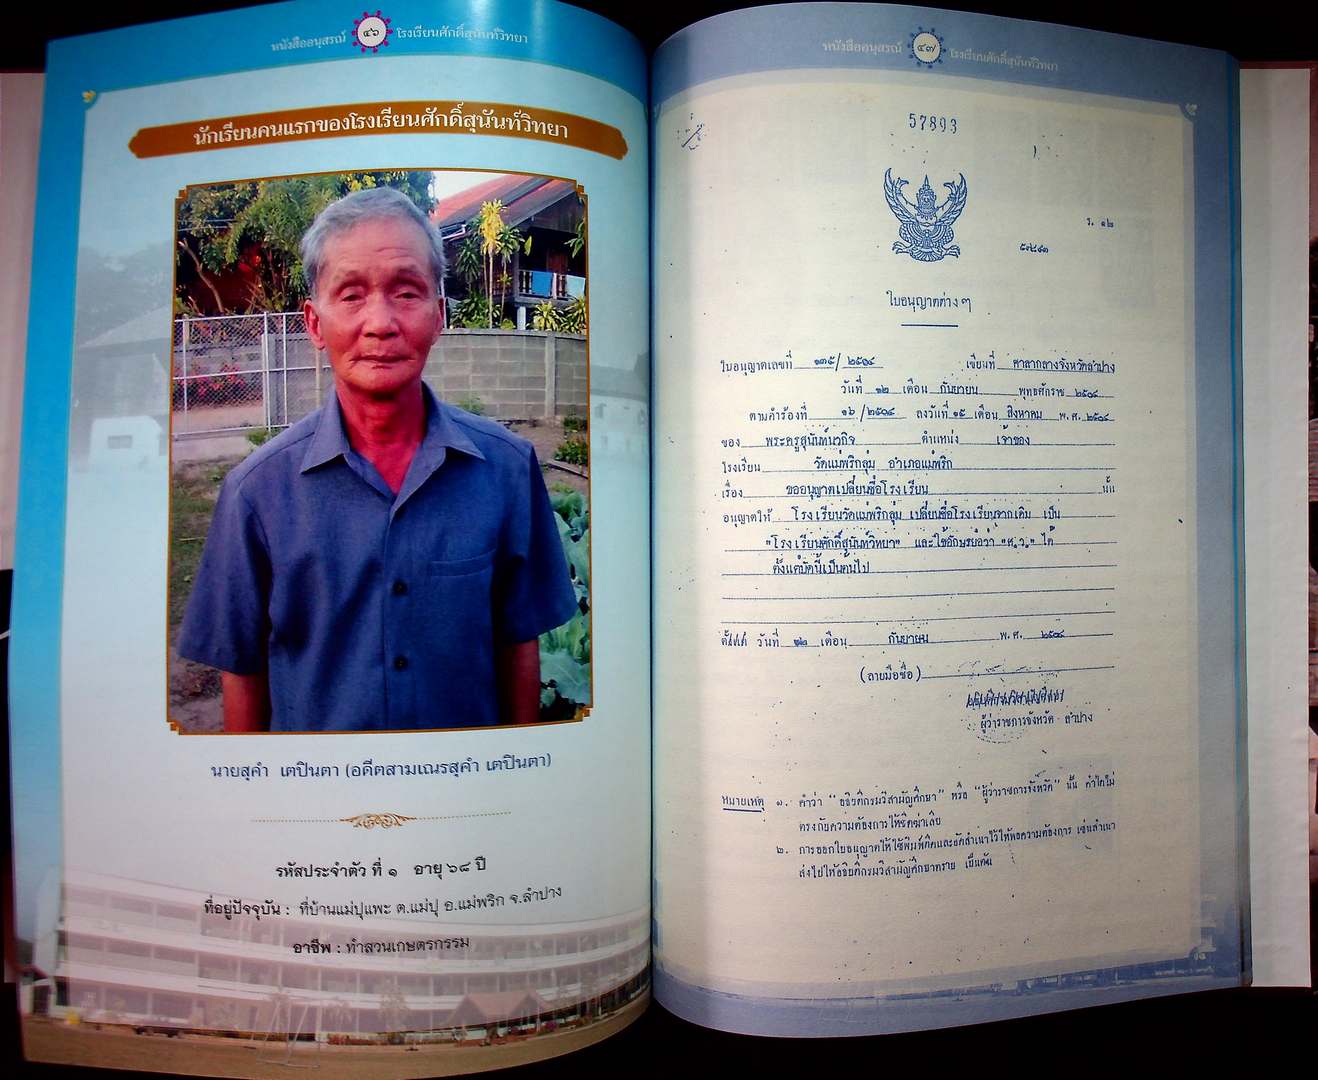 หนังสืออนุสรณ์ ๔๖ โรงเรียนศักดิ์สุนันท์วิทยา
นักเรียนคนแรกของโรงเรียนศักดิ์สุนันท์วิทยา
นายสุคำ เตปินตา (อดีตสามเณรสุคำ เตปินตา)
รหัสประจำตัว ที่ ๑ อายุ ๖๘ ปี
ที่อยู่ปัจจุบัน : ที่บ้านแม่ปุแพะ ต.แม่ปุ อ.แม่พริก จ.ลำปาง
อาชีพ : ทำสวนเกษตรกรรม
หนังสืออนุสรณ์ ๔๗ โรงเรียนศักดิ์สุนันท์วิทยา
57893
ร. ๑๒
ใบอนุญาตต่าง ๆ
ใบอนุญาตเลขที่ ๑๓๕/๒๕๐๔ เขียนที่ ศาลากลางจังหวัดลำปาง
วันที่ ๑๒ เดือน กันยายน พุทธศักราช ๒๕๐๔
ตามคำร้องที่ ๑๖/๒๕๐๔ ลงวันที่ ๑๕ เดือน สิงหาคม พ.ศ. ๒๕๐๔
ของ พระครูสุนันท์นวกิจ ตำแหน่ง เจ้าของ
โรงเรียน วัดแม่พริกลุ่ม อำเภอแม่พริก
เรื่อง ขออนุญาตเปลี่ยนชื่อโรงเรียน นั้น
อนุญาตให้ โรงเรียนวัดแม่พริกลุ่ม เปลี่ยนชื่อโรงเรียนจากเดิม เป็น
"โรงเรียนศักดิ์สุนันท์วิทยา" และใช้อักษรย่อว่า "ศ.ว." ได้
ตั้งแต่บัดนี้เป็นต้นไป
ตั้งแต่ วันที่ ๑๒ เดือน กันยายน พ.ศ. ๒๕๐๔
(ลายมือชื่อ)
ผู้ว่าราชการจังหวัด ลำปาง
หมายเหตุ ๑. คำว่า "อธิบดีกรมวิสามัญศึกษา" หรือ "ผู้ว่าราชการจังหวัด" นั้น คำใดไม่
ตรงกับความต้องการให้ขีดฆ่าเสีย
๒. การออกใบอนุญาตให้ใช้พิมพ์ดีดและอัดสำเนาไว้ให้พอความต้องการ เช่นสำเนา
ส่งไปให้อธิบดีกรมวิสามัญศึกษาทราบ เป็นต้น